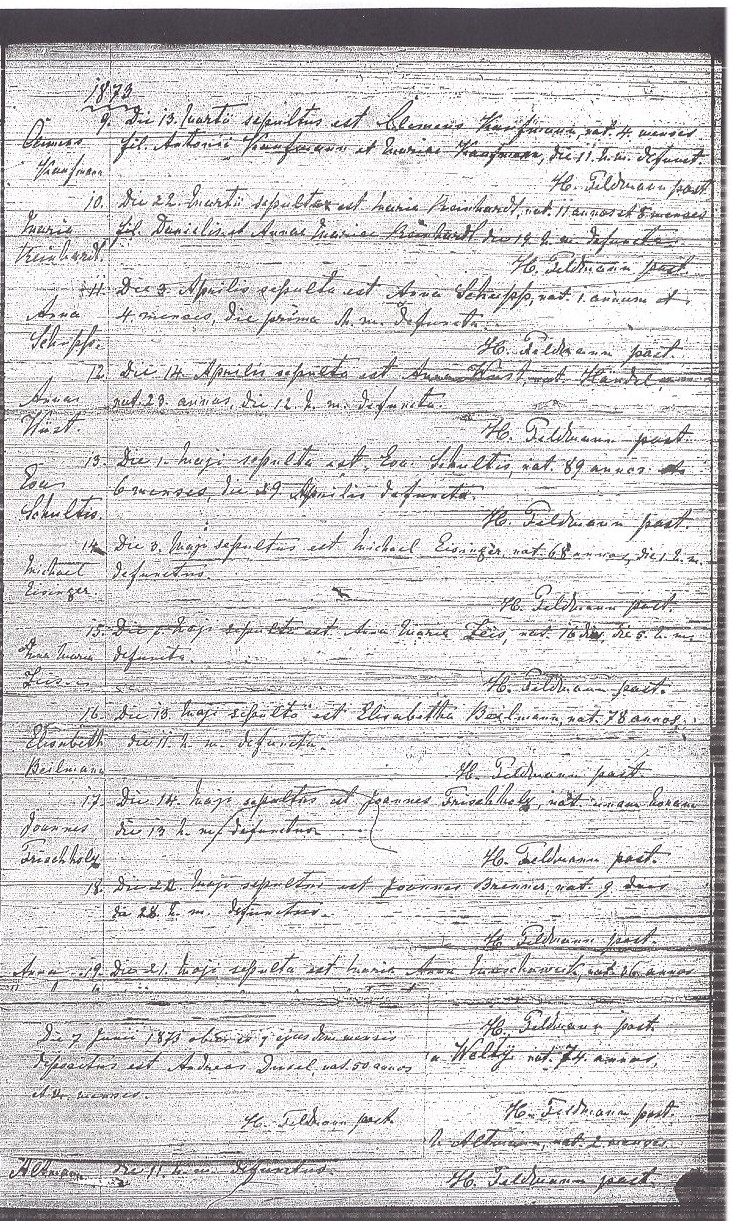 1873
9. Die 13. Martii sepultus est Clemens Kaufmann, nat. 4 menses
Clemens fil. Antonii Kaufmann et Mariae Kaufmann, die 11. h. m. defunct.
Kaufmann
H. Feldmann past.
10. Die 22. Martii sepulta est Maria Reinhardt, nat. 11 annos et 8 menses
Maria fil. Danielis et Annae Mariae Reinhardt die 19. h. m. defuncta.
Reinhardt
H. Feldmann past.
11. Die 3. Aprilis sepulta est Anna Schepp, nat. 1. annum et
Anna 4 menses, die prima h. m. defuncta.
Schepp.
H. Feldmann past.
12. Die 14. Aprilis sepulta est Anna Wüst, nat. Händel,
Anna nat 23. annos, die 12. h. m. defuncta.
Wüst.
H. Feldmann past.
13. Die 1. Maji sepulta est Eva Schultes, nat. 89 annos
Eva 6 menses, die 29 Aprilis defuncta.
Schultes.
H. Feldmann past.
14. Die 3. Maji sepultus est Michael Eisinger, nat. 68 annos, die 1. h. m.
Michael defunctus.
Eisinger
H. Feldmann past.
15. Die 7. Maji sepulta est Anna Maria Zeis, nat. 16 dies, die 5. h. m.
Anna Maria defuncta.
Zeis
H. Feldmann past.
16. Die 13. Maji sepulta est Elisabetha Beilmann, nat. 78 annos,
Elisabeth die 11. h. m. defuncta.
Beilmann
H. Feldmann past.
17. Die 14. Maji sepultus est Joannes Frischholz, nat. unam horam
Joannes die 13 h. m. defunctus.
Frischholz
H. Feldmann past.
18. Die 22. Maji sepultus est Joannes Brenner, nat. 9 dies
die h. m. defunctus.
H. Feldmann past.
Anna 19. Die 21. Maji sepulta est Maria Anna nat. 26 annos
H. Feldmann past.
Die 7 Junii 1873 obiit et 9 ejusdem mensis
depositus est Andreas Dusel, nat. 50 annos
nat. 74 annos,
et menses.
H. Feldmann past.
H. Feldmann past.
Altmann, nat. 2 menses
Altmann die 11. h. m. defunctus.
H. Feldmann past.